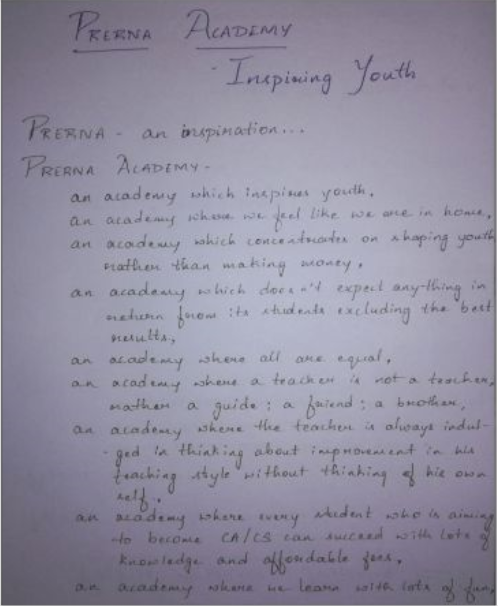 PRERNA ACADEMY
- Inspiring Youth
PRERNA - an inspiration...
PRERNA ACADEMY -
an academy which inspires youth,
an academy where we feel like we are in home,
an academy which concentrates on shaping youth
rather than making money,
an academy which doesn't expect any-thing in
return from its students excluding the best
results,
an academy where all are equal,
an academy where a teacher is not a teacher,
rather a guide; a friend; a brother,
an academy where the teacher is always indul-
-ged in thinking about improvement in his
teaching style without thinking of his own
self,
an academy where every student who is aiming
to become CA/CS can succeed with lots of
knowledge and affordable fees,
an academy where we learn with lots of fun,